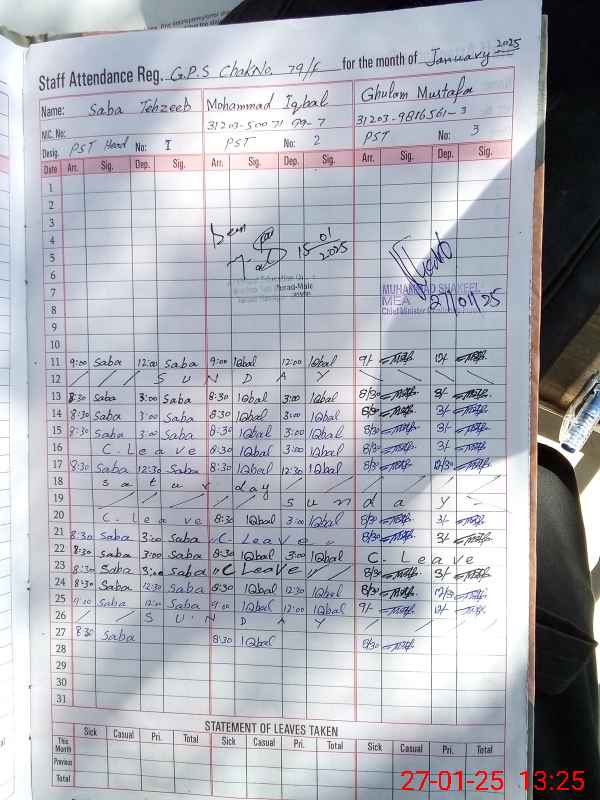 Staff Attendance Reg. G.P.S Chak No. 79/F for the month of January 2025
Name: Saba Tehzeeb Mohammad Iqbal Ghulam Mustafa
NIC. No: 31203-9816561-3
Desig. PST Head No: 1 PST No: 2 PST No: 3
Date Arr. Sig. Dep. Sig. Arr. Sig. Dep. Sig. Arr. Sig. Dep. Sig.
1
2
3
4
15 01 2025
5
6
7
MUHAMMAD SHAKEEL
8
MEA 27/01/25
Chief Minister
9
10
11 9:00 Saba 12:00 Saba 9:00 IQbal 12:00 IQbal 9/- 12/-
12 SUNDAY
13 8:30 Saba 3:00 Saba 8:30 IQbal 3:00 IQbal 8/30 3/-
14 8:30 Saba 3:00 Saba 8:30 IQbal 3:00 IQbal 8/30 3/-
15 8:30 Saba 3:00 Saba 8:30 IQbal 3:00 IQbal 8/30 3/-
16 C. Leave 8:30 IQbal 3:00 IQbal 8/30 3/-
17 8:30 Saba 12:30 Saba 8:30 IQbal 12:30 IQbal 8/30 12/30
18 Saturday
19 Sunday
20 C. Leave 8:30 IQbal 3:00 IQbal 8/30 3/-
21 8:30 Saba 3:00 Saba " C- Leave " 8/30 3/-
22 8:30 Saba 3:00 Saba 8:30 IQbal 3:00 IQbal C. Leave
23 8:30 Saba 3:00 Saba " C Leave " 8/30 3/-
24 8:30 Saba 12:30 Saba 8:30 IQbal 12:30 IQbal 8/30 12/30
25 9:00 Saba 12:00 Saba 9:00 IQbal 12:00 IQbal 9/- 12/-
26 SUNDAY
27 8:30 Saba 8:30 IQbal 8/30
28
29
30
31
STATEMENT OF LEAVES TAKEN
Sick Casual Pri. Total Sick Casual Pri. Total Sick Casual Pri. Total
This Month
Previous
Total
27-01-25 13:25